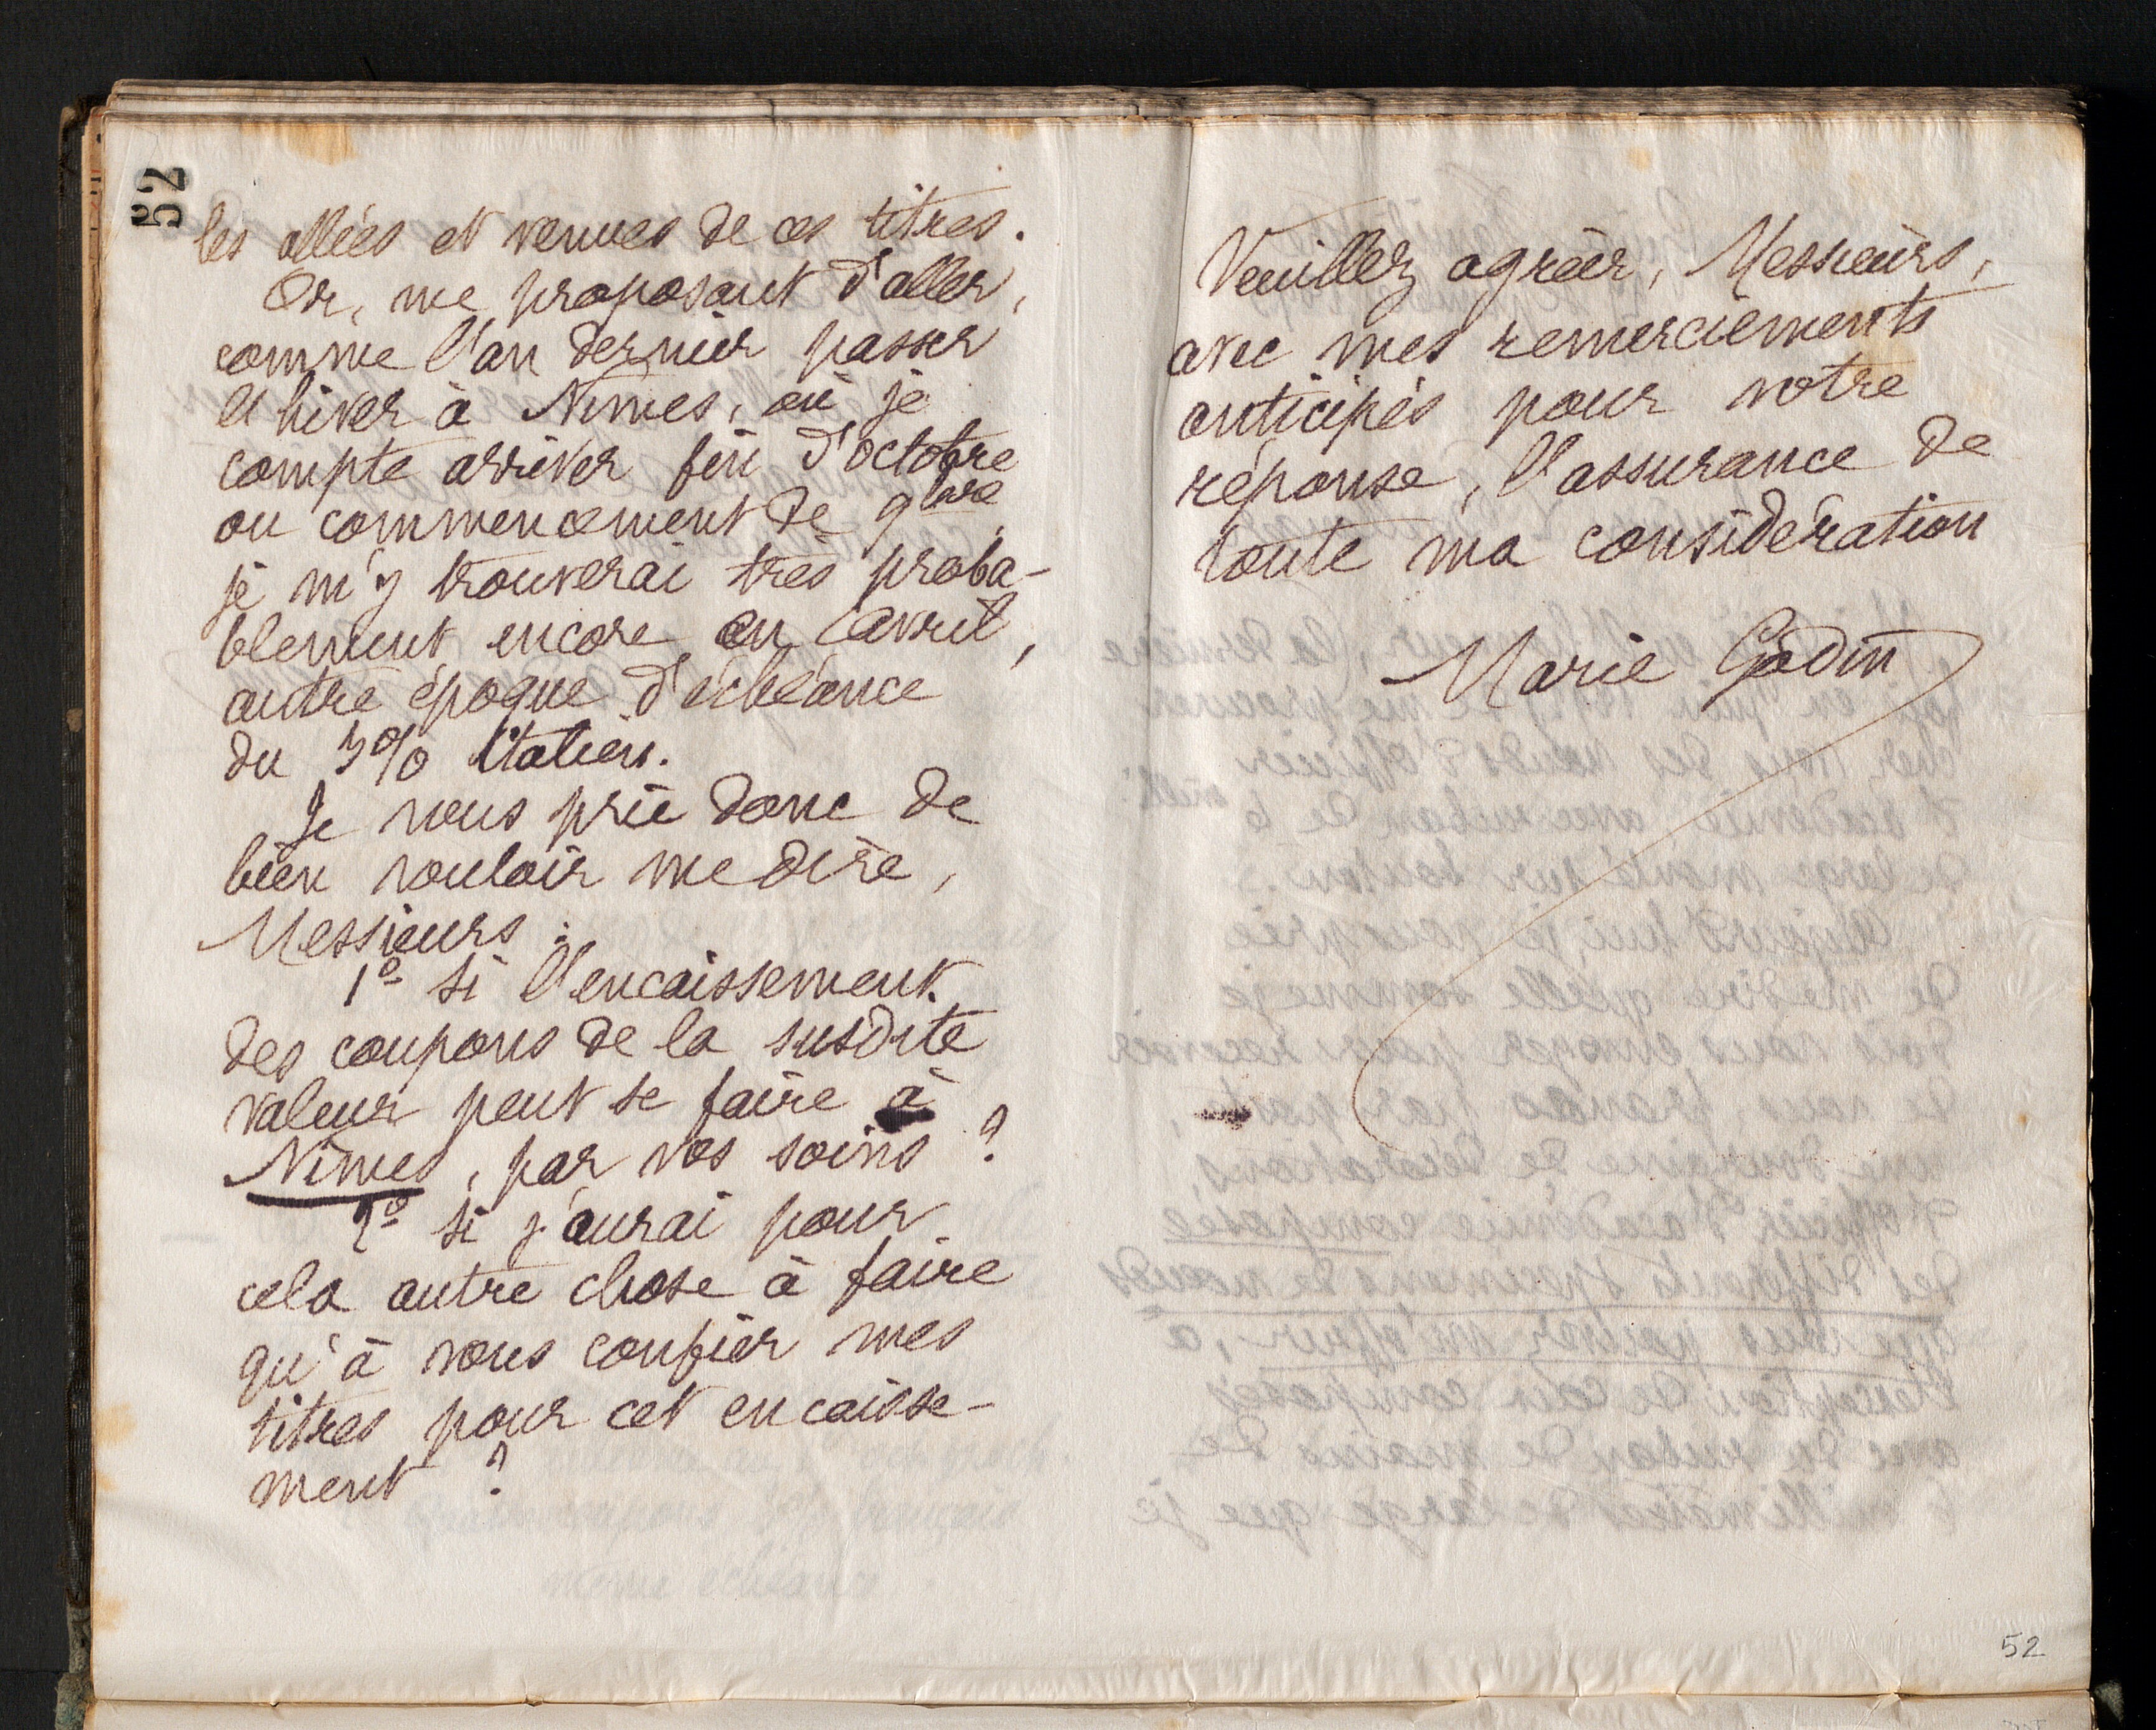 52
les allées et venues de ces titres.
Or, me proposant d'aller,
comme l'an dernier passer
l'hiver à Nîmes, où je
compte arriver fin d'octobre
ou commencement de 9bre,
je m'y trouverai très proba-
blement encore en avril,
autre époque d'échéance
du 3% Italien.
Je vous prie donc de
bien vouloir me dire,
Messieurs :
1º si l'encaissement
des coupons de la susdite
valeur peut se faire à
Nîmes, par vos soins ?
2º si j'aurai pour
cela autre chose à faire
qu'à vous confier mes
titres pour cet encaisse-
ment ?
Veuillez agréer, Messieurs,
avec mes remerciements
anticipés pour votre
réponse, l'assurance de
toute ma considération
Marie Godin
52